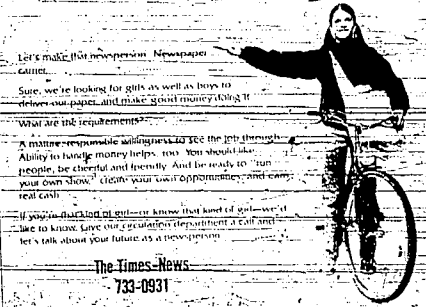 Let's make that newsperson. Newspaper
carrier.
Sure, we're looking for girls as well as boys to
deliver our paper and make good money doing it.
What are the requirements?
A mature, responsible willingness to see the job through.
Ability to handle money helps, too. You should like
people, be cheerful and friendly. And be ready to "run
your own show," create your own opportunities, and earn
real cash.
If you're that kind of girl—or know that kind of girl—we'd
like to know. Give our circulation department a call and
let's talk about your future as a newsperson.
The Times-News
733-0931